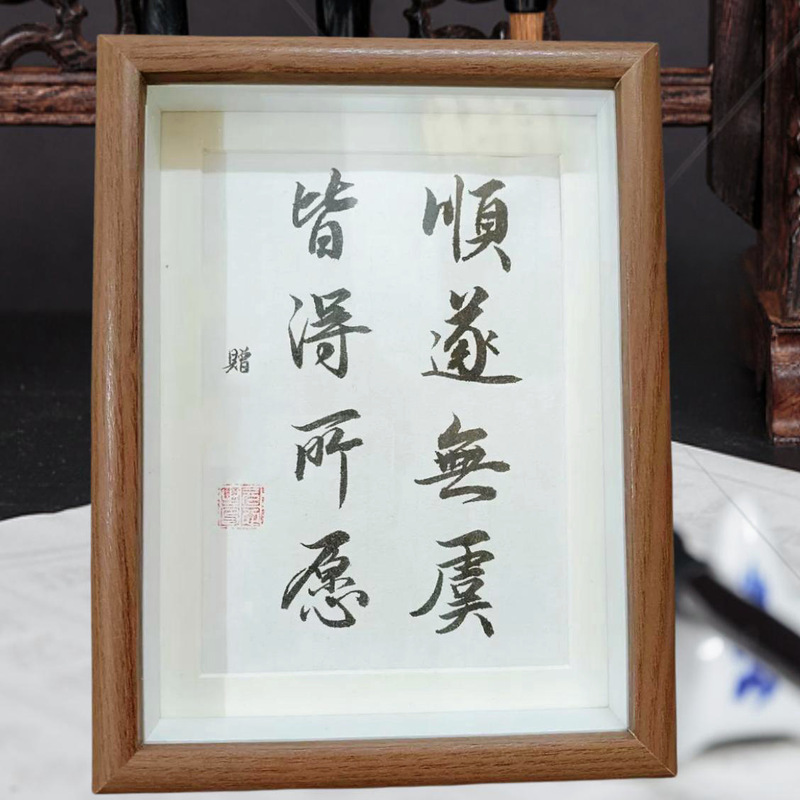 順遂無虞
皆得所愿
贈